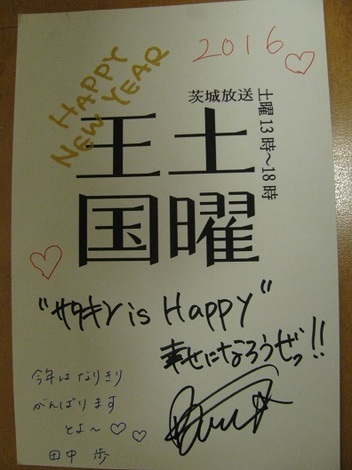 HAPPY
NEW YEAR
2016
茨城放送
土曜13時～18時
土曜
王国
"サタキン is Happy"
幸せになろうぜッ!!
今年はなりきり
がんばります
とよ～
田中 歩